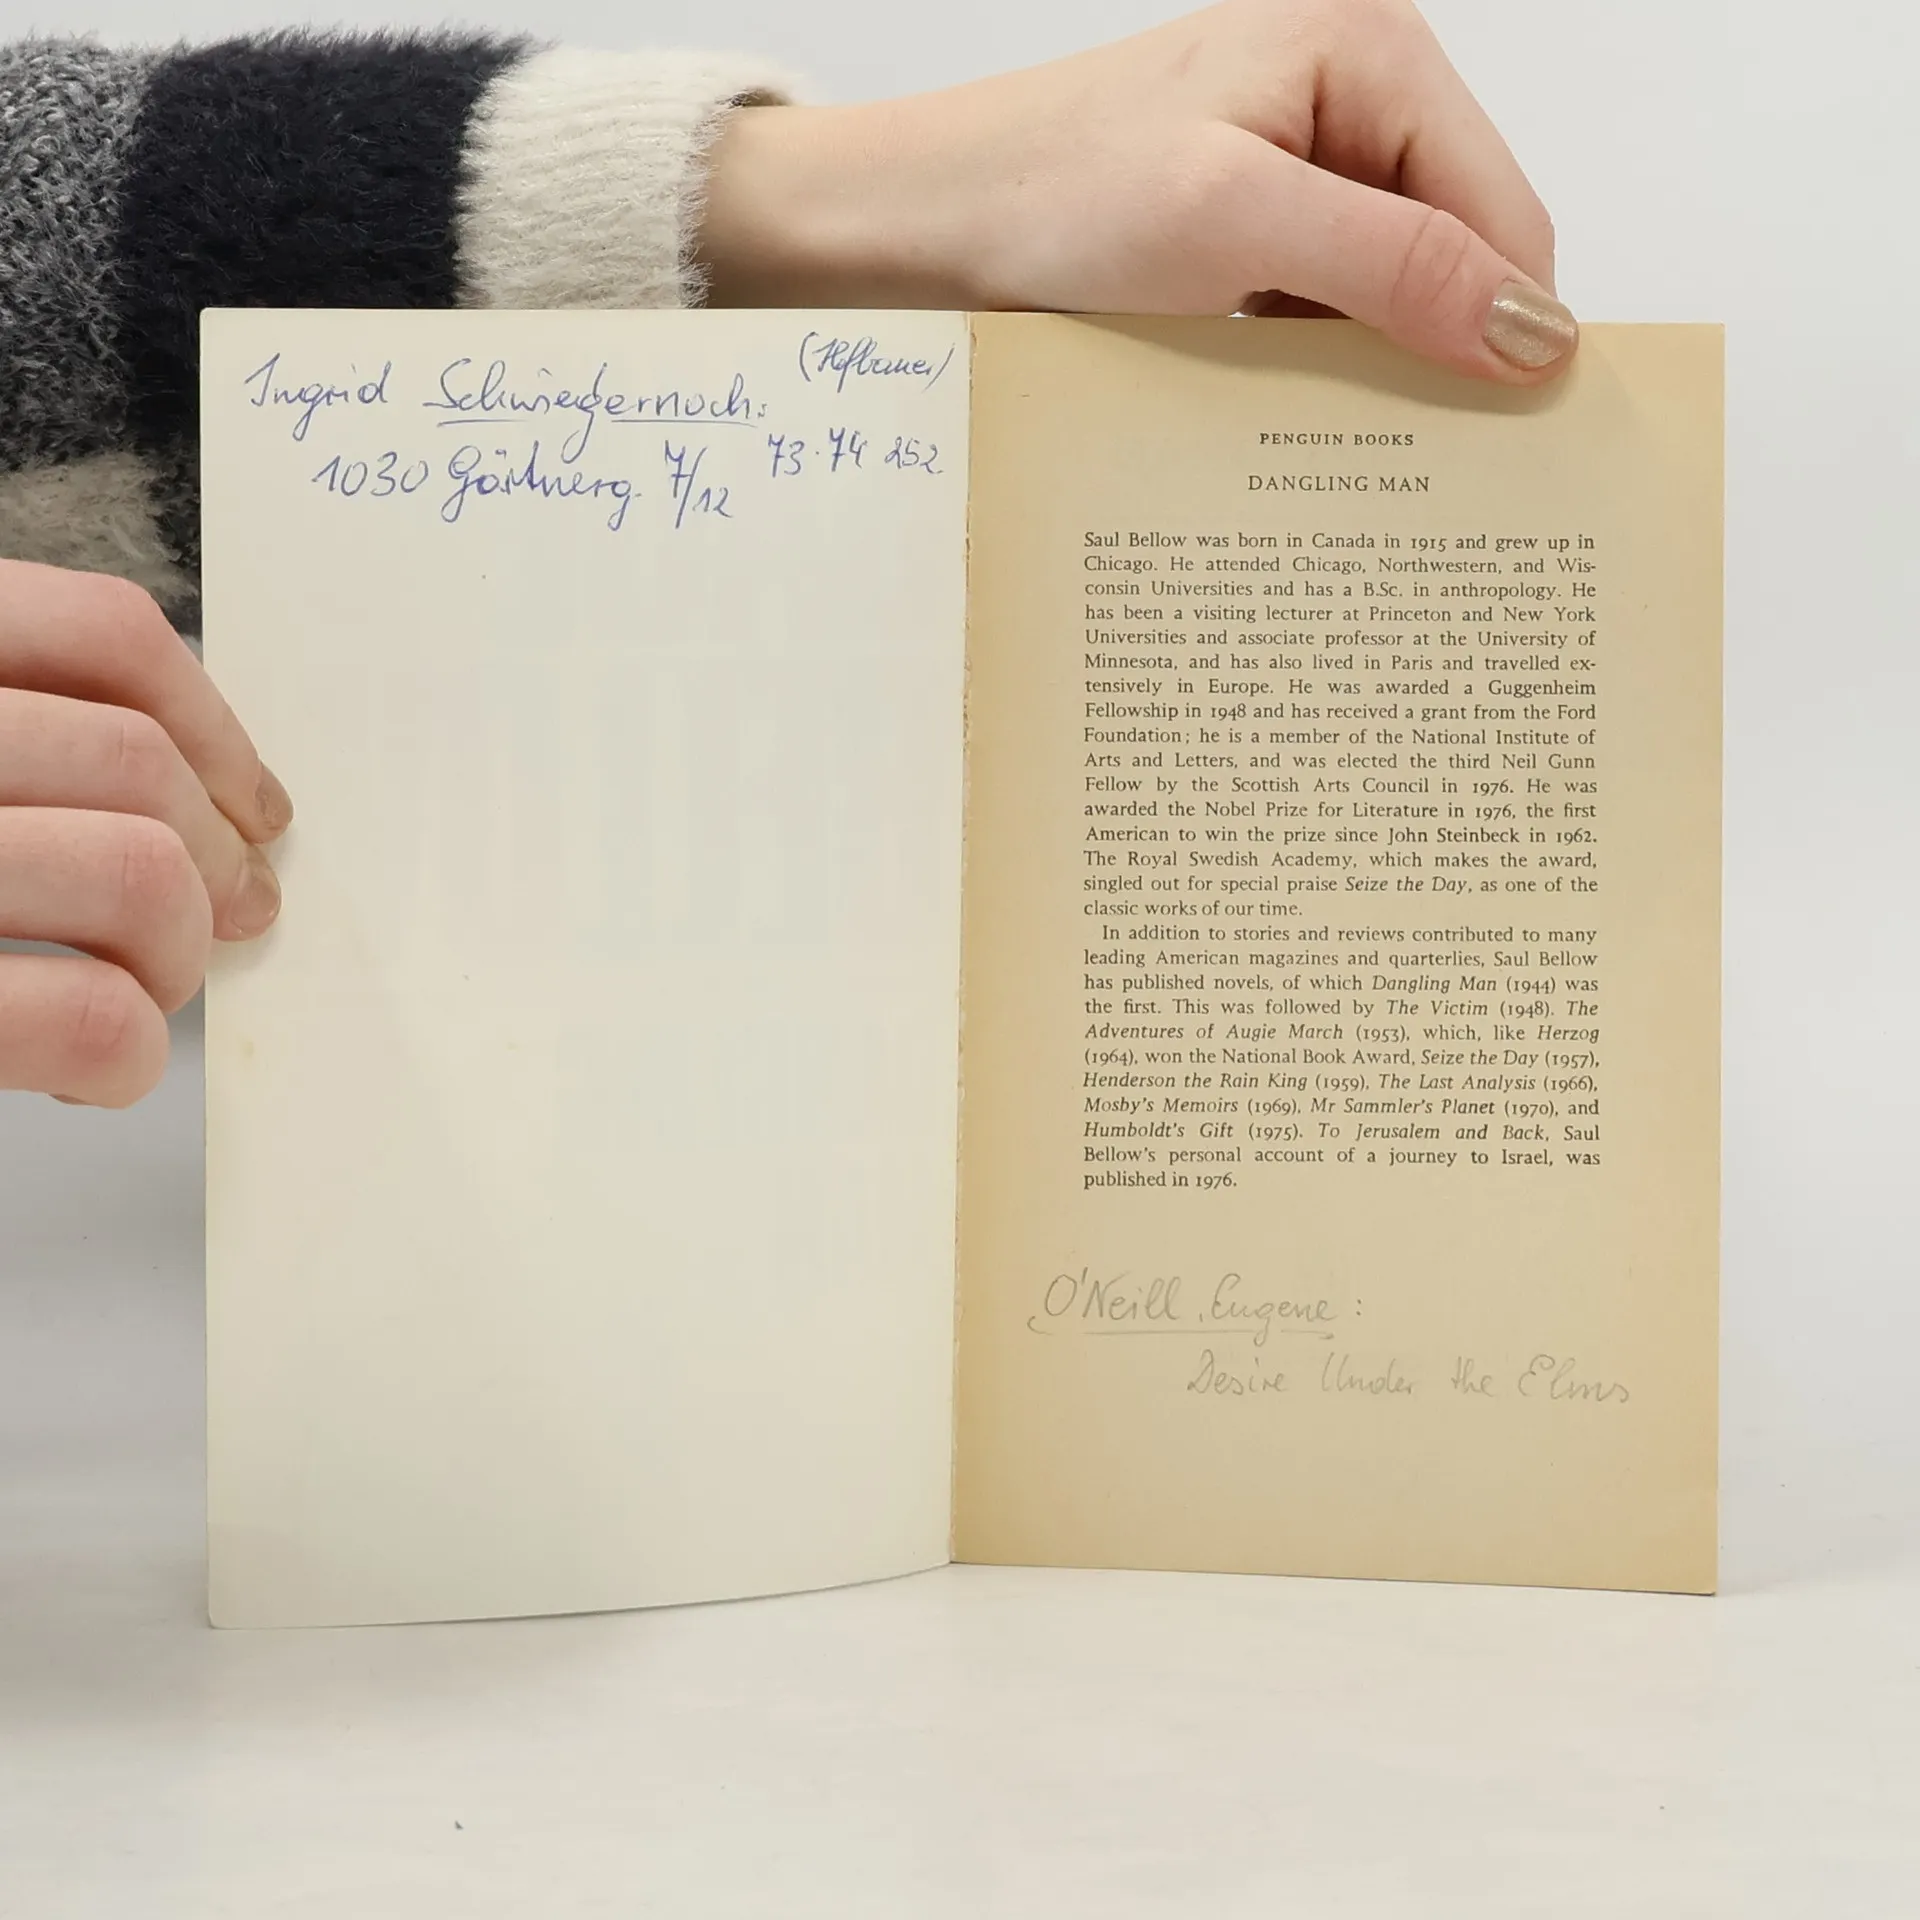 (Hofbauer)
Ingrid Schwiegernoch:
1030 Gärtnerg. 7/12 73.74 252
PENGUIN BOOKS
DANGLING MAN
Saul Bellow was born in Canada in 1915 and grew up in
Chicago. He attended Chicago, Northwestern, and Wis-
consin Universities and has a B.Sc. in anthropology. He
has been a visiting lecturer at Princeton and New York
Universities and associate professor at the University of
Minnesota, and has also lived in Paris and travelled ex-
tensively in Europe. He was awarded a Guggenheim
Fellowship in 1948 and has received a grant from the Ford
Foundation; he is a member of the National Institute of
Arts and Letters, and was elected the third Neil Gunn
Fellow by the Scottish Arts Council in 1976. He was
awarded the Nobel Prize for Literature in 1976, the first
American to win the prize since John Steinbeck in 1962.
The Royal Swedish Academy, which makes the award,
singled out for special praise Seize the Day, as one of the
classic works of our time.
In addition to stories and reviews contributed to many
leading American magazines and quarterlies, Saul Bellow
has published novels, of which Dangling Man (1944) was
the first. This was followed by The Victim (1948). The
Adventures of Augie March (1953), which, like Herzog
(1964), won the National Book Award, Seize the Day (1957),
Henderson the Rain King (1959), The Last Analysis (1966),
Mosby's Memoirs (1969), Mr Sammler's Planet (1970), and
Humboldt's Gift (1975). To Jerusalem and Back, Saul
Bellow's personal account of a journey to Israel, was
published in 1976.
O'Neill, Eugene:
Desire Under the Elms